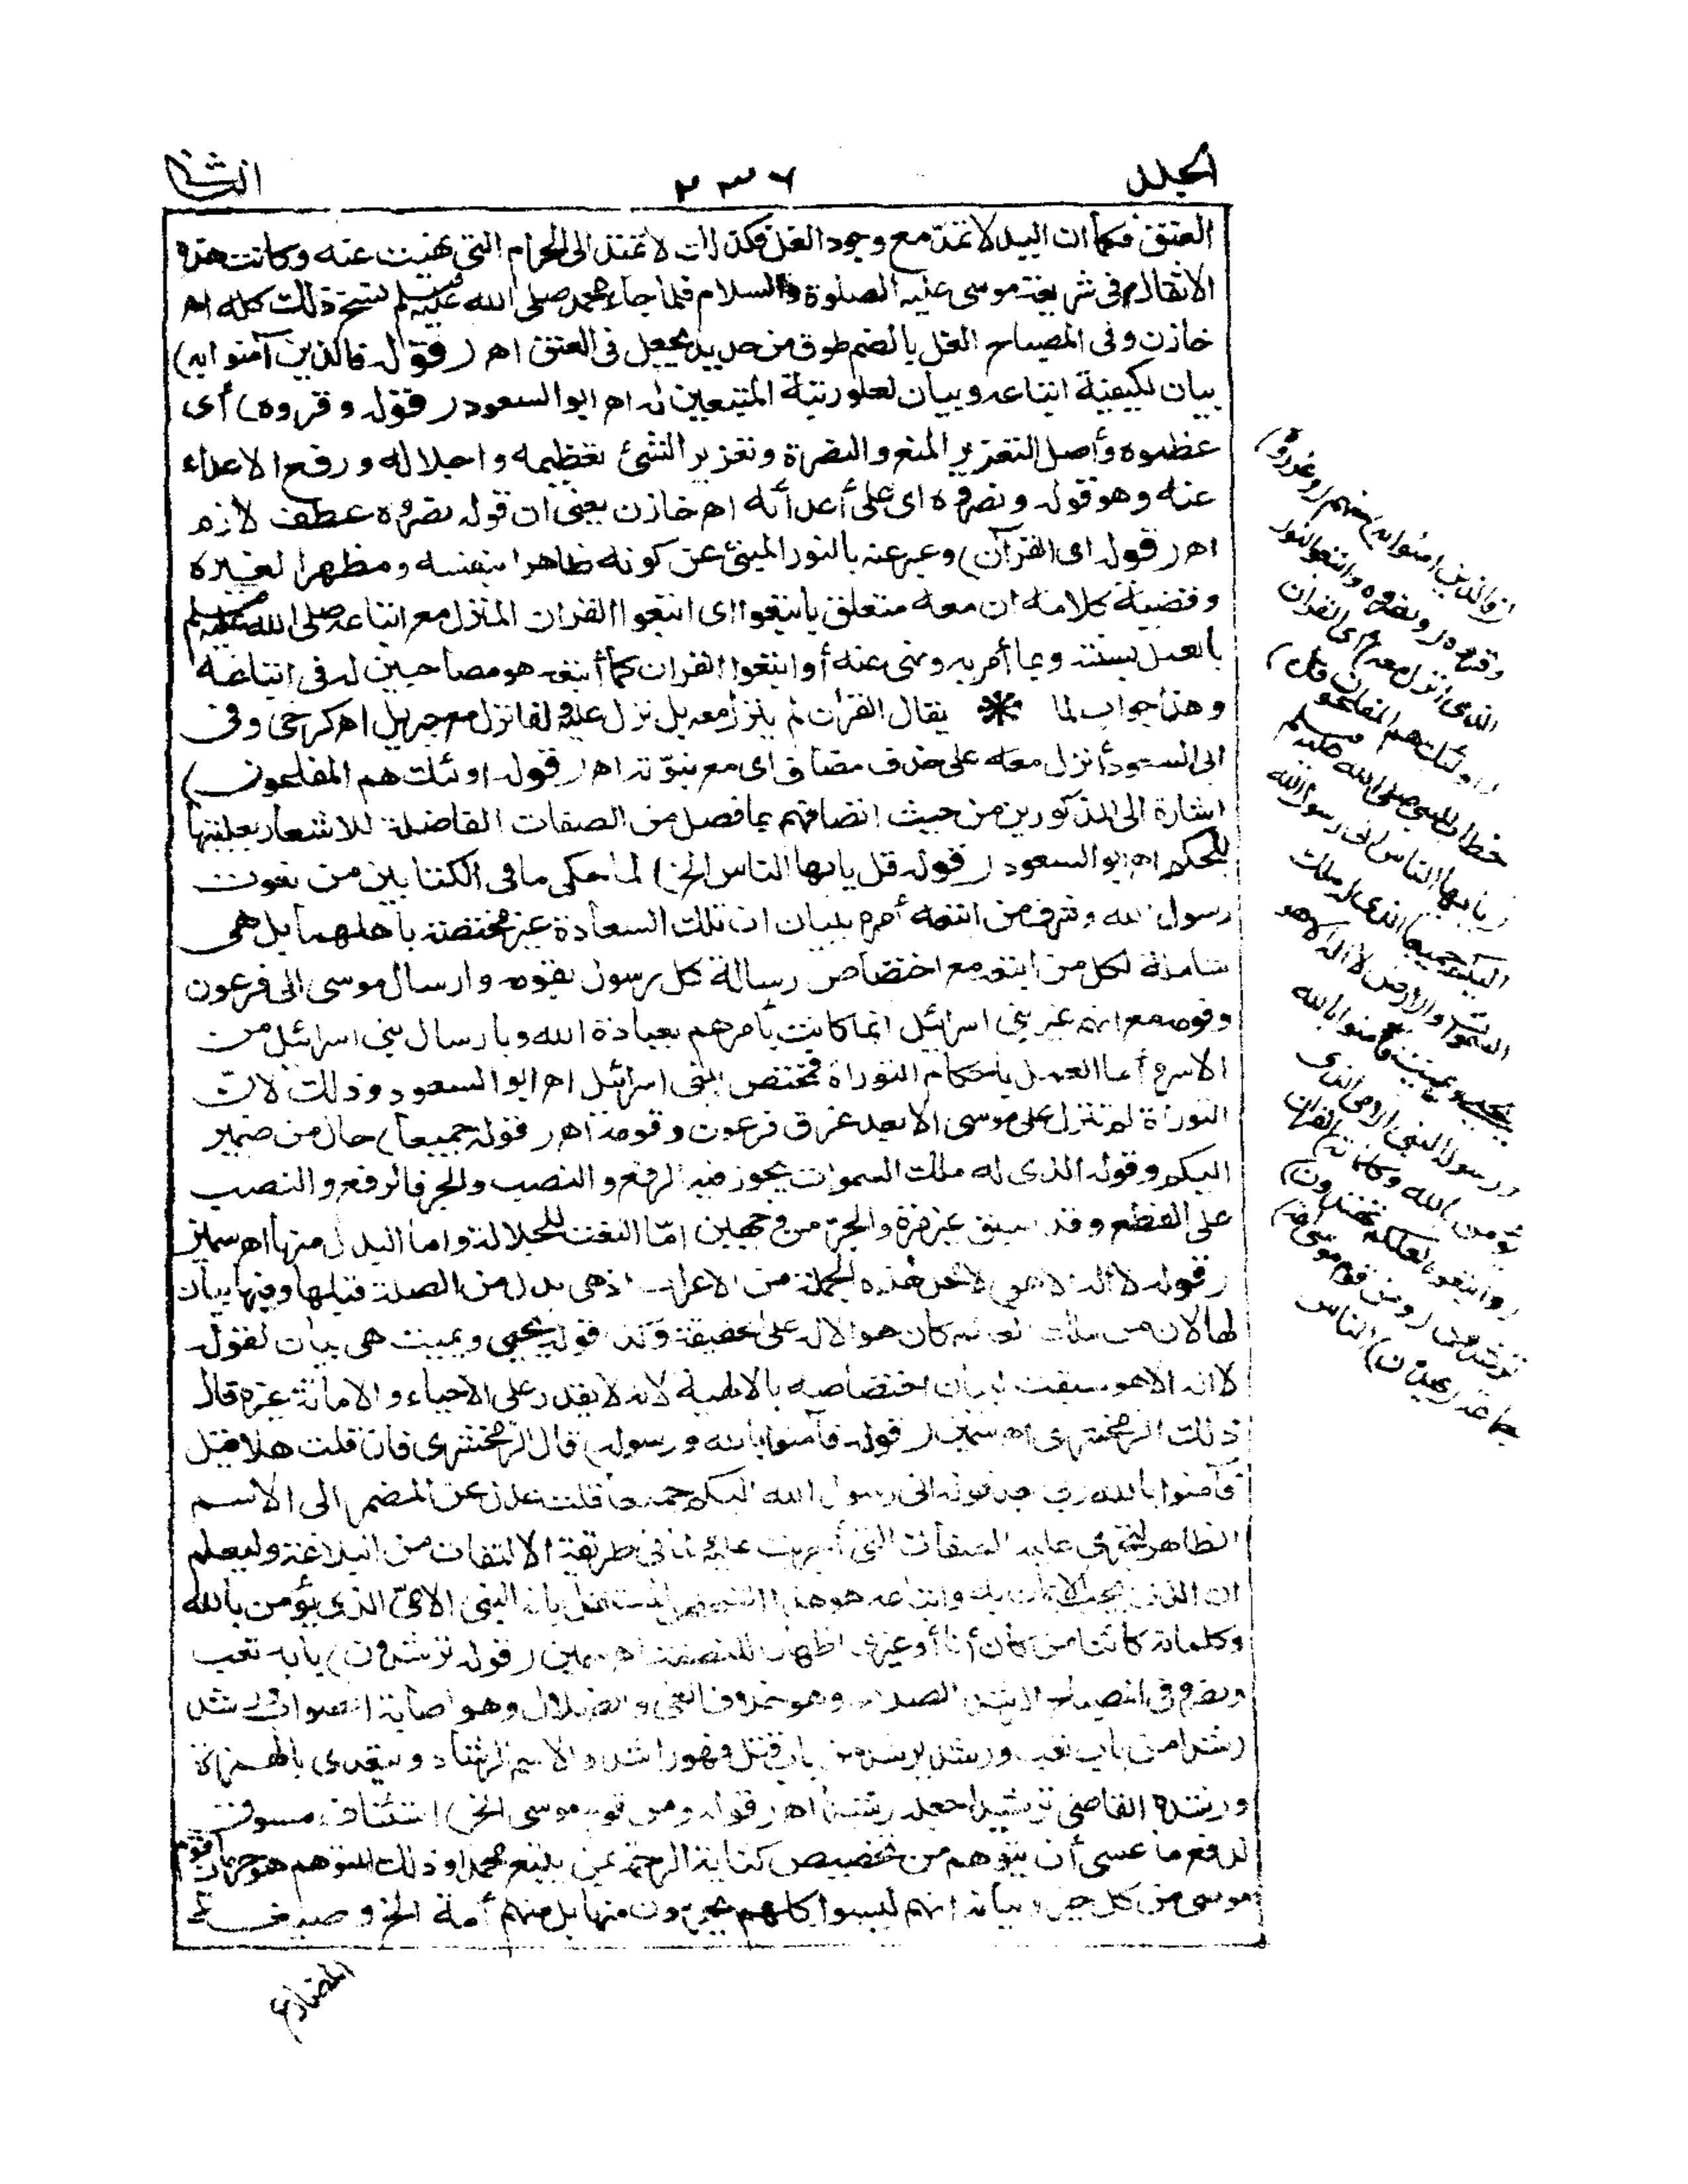 الجلد ٢٣٦ الثانى
العنق فكما ان اليد لا تمتد مع وجود الغل فكذلك لا تمتد الى الحرام التى نهيت عنه وكانت هذه
الاثقال فى شريعة موسى عليه الصلوة والسلام فلما جاء محمد صلى الله عليه وسلم نسخ ذلك كله اهـ
خازن وفى المصباح الغل بالضم طوق من حديد يجعل فى العنق اهـ (قوله فالذين آمنوا به)
بيان لكيفية اتباعه وبيان لعلو رتبة المتبعين له اهـ ابو السعود (قوله وقروه) أى
عظموه وأصل التعزير المنع والنصرة وتعزير الشئ تعظيمه واجلاله ورفع الاعداء
عنه وهو قوله ونصروه اى على أعدائه اهـ خازن يعنى ان قوله نصروه عطف لازم
اهـ (قوله اى القرآن) وعبر عنه بالنور المنبئ عن كونه ظاهرا بنفسه ومظهرا لغيره
وقضية كلامه ان معه متعلق باتبعوا اى اتبعوا القران المنزل مع اتباعه صلى الله عليه وسلم
بالعمل بسنته وبما أمر به ونهى عنه أو اتبعوا القران كما أتبعه هو مصاحبين له فى اتباعه
وهذا جواب لما * يقال القرأن لم ينزل معه بل نزل عليه وانما نزل مع جبريل اهـ كرخى وفى
ابى السعود أنزل معه على حذف مضاف اى مع نبوّته اهـ (قوله اولئك هم المفلحون)
اشارة الى المذكورين من حيث اتصافهم بما فصل من الصفات الفاضلة للاشعار بعليتها
للحكم اهـ ابو السعود (قوله قل يايها الناس الخ) لما حكى ما فى الكتابين من نعوت
رسول الله وشرف من اتبعه أمره ببيان ان تلك السعادة غير مختصة بأهلهما بل هى
شاملة لكل من اتبعه مع اختصاص رسالة كل رسول بقومه وارسال موسى الى فرعون
وقومه مع انهم غير بنى اسرائيل انما كانت بأمرهم بعبادة الله وبارسال بنى اسرائيل من
الاسر أما العمل باحكام التوراة فمختص ببنى اسرائيل اهـ ابو السعود وذلك لان
التوراة لم تنزل على موسى الا بعد غرق فرعون وقومه اهـ (قوله جميعا) حال من ضمير
اليكم وقوله الذى له ملك السموات يجوز فيه الرفع والنصب والجر فالرفع والنصب
على القطع وقد سبق غير مرة والجرّ من وجهين امّا النعت للجلالة واما البدل منها اهـ سمين
(قوله لا اله الا هو) لا محل لهذه الجملة من الاعراب اذ هى بدل من الصلة قبلها وفيها بيان
لها لان من ملك العالم كان هو الاله على الحقيقة وقوله يحيى ويميت هى بيان لقوله
لا اله الا هو سيقت لبيان اختصاصه بالالهية لانه لا يقدر على الاحياء والاماتة غيره قال
ذلك الزمخشرى اهـ سمين (قوله فآمنوا بالله ورسوله) قال الزمخشرى فان قلت هلا قيل
فآمنوا بالله وبى بعد قوله انى رسول الله اليكم جميعا قلت عدل عن المضمر الى الاسم
الظاهر لتجرى عليه الصفات التى أجريت عليه ولما فى طريقة الالتفات من البلاغة وليعلم
ان الذى يجب الايمان به واتباعه هو هذا الشخص المستقل بانه النبى الامّىّ الذى يؤمن بالله
وكلماته كائنا من كان أنا أو غيرى اظهارا للنصفة اهـ سمين (قوله ترشدون) بابه تعب
ونصر وفى المصباح الرشد الصلاح وهو خلاف الغى والضلال وهو اصابة الصواب ورشد
رشدا من باب تعب ورشد يرشد من باب قتل فهو راشد والاسم الرشاد ويتعدى بالهمزة
ورشده القاضى ترشيدا جعله رشيدا اهـ (قوله ومن قوم موسى الخ) استئناف مسوق
لدفع ما عسى أن يتوهم من تخصيص كتابة الرحمة بمن يتبع محمدا وذلك التوهم هو حرمان قوم
موسى من كل خير وبيانه انهم ليسوا كلهم يحرمون منها بل منهم أمة الخ وصيغة
المضارع
(فالذين امنوا به) منهم (وعزروه)
وقروه (ونصروه واتبعوا النور
الذى انزل معه) اى القران
(اولئك هم المفلحون قل)
خطاب للنبى صلى الله عليه وسلم
(يايها الناس انى رسول الله
اليكم جميعا الذى له ملك
السموات والارض لا اله الا هو
يحيى ويميت فآمنوا بالله
ورسوله النبى الامى الذى
يؤمن بالله وكلماته) القران
(واتبعوه لعلكم تهتدون)
ترشدون (ومن قوم موسى امة)
جماعة (يهدون) الناس